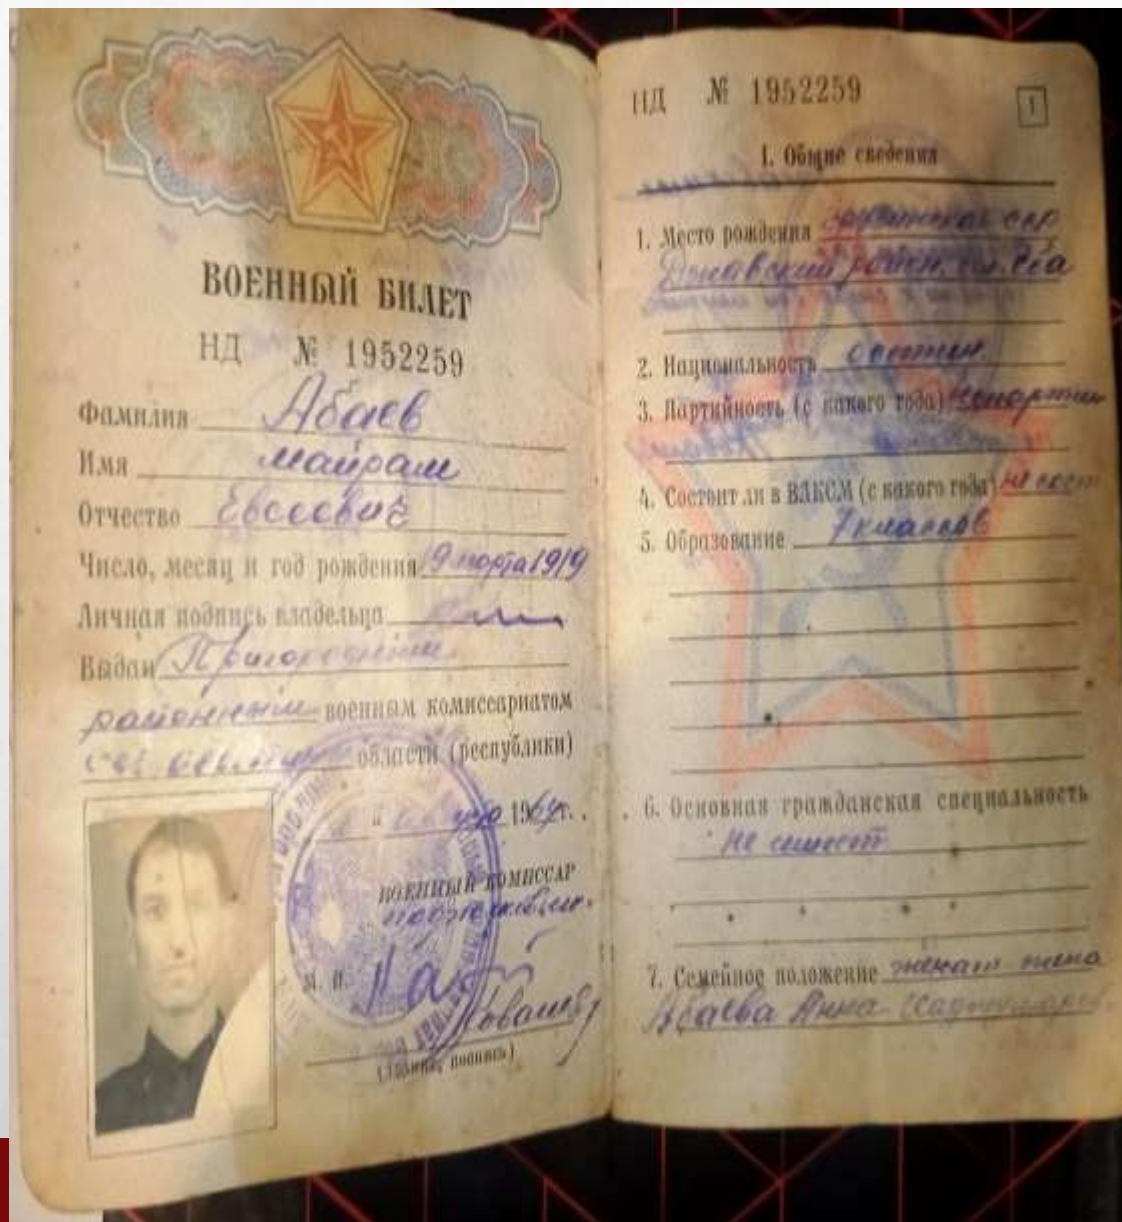 ВОЕННЫЙ БИЛЕТ
НД № 1952259
Фамилия Абаев
Имя Майрам
Отчество Евсеевич
Число, месяц и год рождения 19 марта 1919
Личная подпись владельца
Выдан Пригородным
районным военным комиссариатом
области (республики)
196 г.
ВОЕННЫЙ КОМИССАР
подполковник
М. П.
(звание, подпись)
НД № 1952259
1
1. Общие сведения
1. Место рождения Грузинская ССР
район
2. Национальность осетин
3. Партийность (с какого года)
4. Состоит ли в ВЛКСМ (с какого года) не сост
5. Образование 7 классов
6. Основная гражданская специальность
не имеет
7. Семейное положение женат жена
Абаева Анна